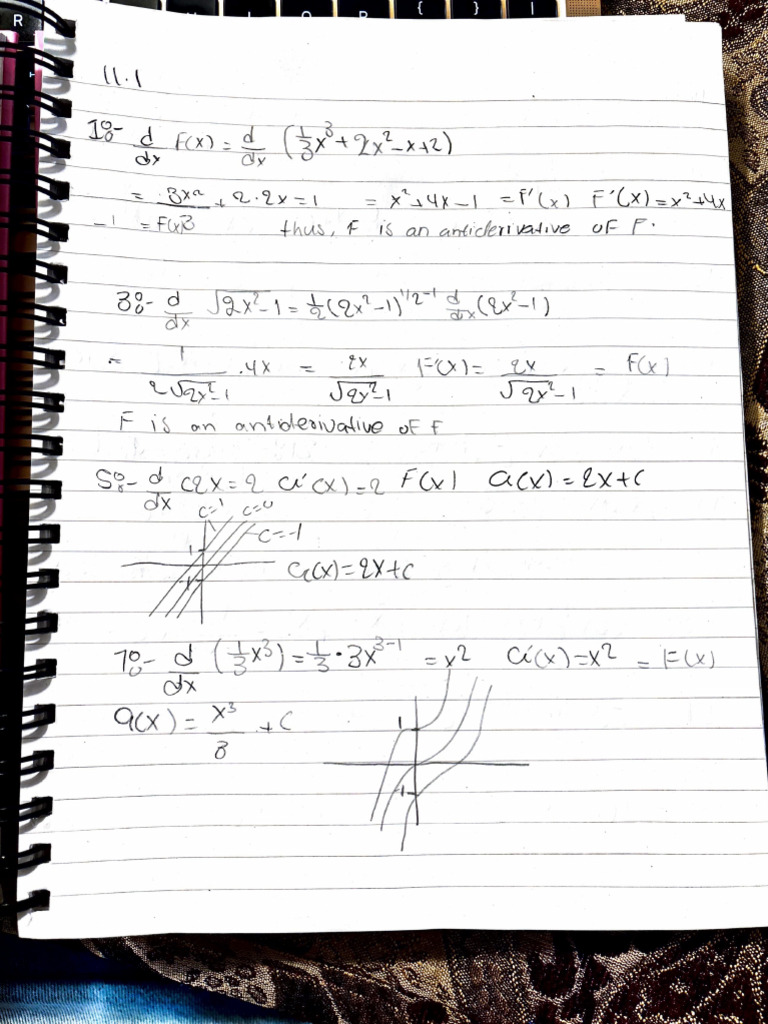 R P { } |
11.1
1%- d/dx F(x) = d/dx (1/3 x³ + 2x² - x + 2)
= 3x²/3 + 2·2x = 1 = x² + 4x - 1 = F'(x) F'(x) = x² + 4x
-1 = F(x) thus, F is an anticlerivative of F.
3%- d/dx √2x²-1 = 1/2 (2x²-1)^1/2-1 d/dx (2x²-1)
= 1/2√2x²-1 · 4x = 2x/√2x²-1 F'(x) = 2x/√2x²-1 = F(x)
F is an antiderivative of F
5%- d/dx (2x = 2 G'(x) = 2 F(x) G(x) = 2x + C
c=1 c=0
1 c=-1
-1 G(x) = 2x + C
7%- d/dx (1/3 x³) = 1/3 · 3x^3-1 = x² G'(x) = x² = F(x)
G(x) = x³/3 + C 1
-1